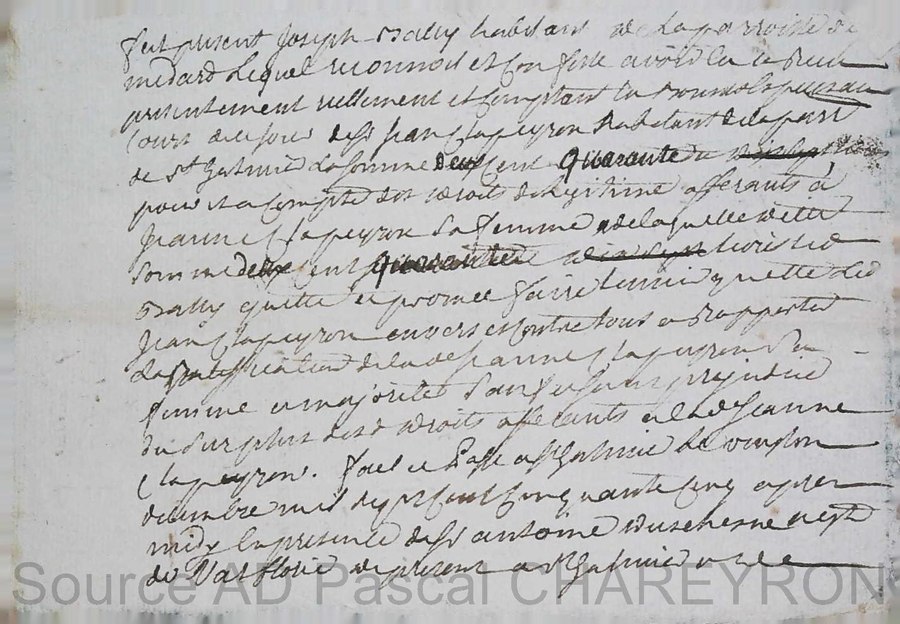 fut present Joseph Bally habitant de la parroisse de
medard lequel reconnoit et confesse avoir eu et receu
presentement reellement et comptant en
cours de ce jour de Sr Jean Clapeyron habitant de la parr
de St Galmier la somme deux cent quarante
pour et a compte des droits de legitime afferants a
Jeanne Clapeyron sa femme de laquelle ditte
somme deux cent quarante livres led
Bally quitte et promet faire tenir quitte led
Jean Clapeyron envers et contre tous et rapporter
la ratification de lad Jeanne Clapeyron sa
femme en majorité sans prejudice
du surplus desd droits afferants a lad Jeanne
Clapeyron. fait et passé a St Galmier le
decembre mil sept cent cinquante cinq apres
midy en presence de Sr antoine Duchesne
de de present a St Galmier et de
Source AD Pascal CHAREYRON